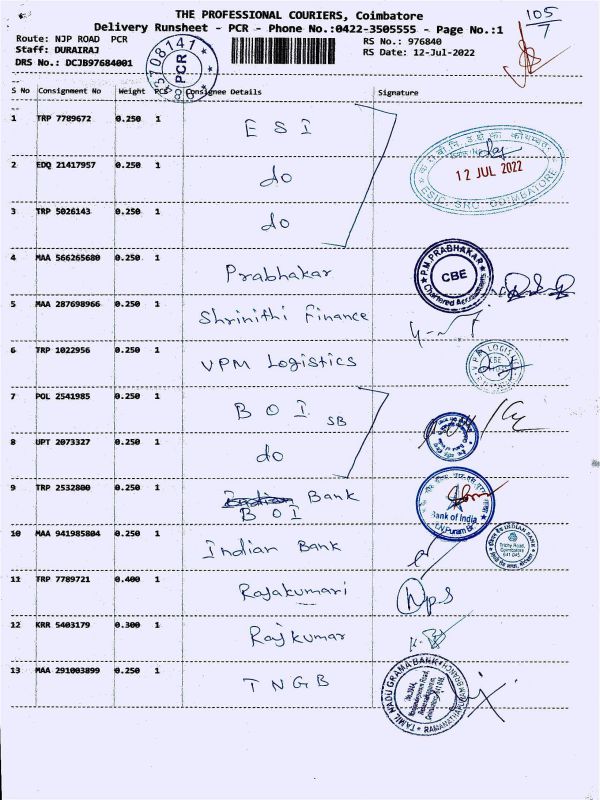 THE PROFESSIONAL COURIERS, Coimbatore
Delivery Runsheet - PCR - Phone No.:0422-3505555 - Page No.:1
105/7
Route: NJP ROAD PCR
RS No.: 976840
Staff: DURAIRAJ
RS Date: 12-Jul-2022
DRS No.: DCJB97684001
PCR
S No Consignment No Weight PCS Consignee Details Signature
1 TRP 7789672 0.250 1 E S I
2 EDQ 21417957 0.250 1 do
12 JUL 2022
ESIC SRO COIMBATORE
3 TRP 5026143 0.250 1 do
4 MAA 566265680 0.250 1 Prabhakar
P.M. PRABHAKAR
CBE
Chartered Accountants
5 MAA 287698966 0.250 1 Shrinithi Finance
6 TRP 1022956 0.250 1 VPM Logistics
VPM LOGISTICS
CBE
7 POL 2541985 0.250 1 B O I SB
8 UPT 2073327 0.250 1 do
9 TRP 2532800 0.250 1 Indian Bank
B O I
Bank of India
10 MAA 941985804 0.250 1 Indian Bank
INDIAN BANK
Trichy Road,
Coimbatore
641 045
11 TRP 7789721 0.400 1 Rajakumari
12 KRR 5403179 0.300 1 Rajkumar
13 MAA 291003899 0.250 1 T N G B
TAMIL NADU GRAMA BANK
RAMANATHAPURAM BRANCH